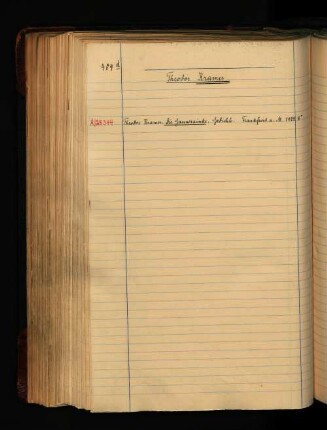 484 d
Theodor Kramer
Theodor Kramer. Die Gaunerzinke. Gedichte. Frankfurt a. M. 1929. 8°